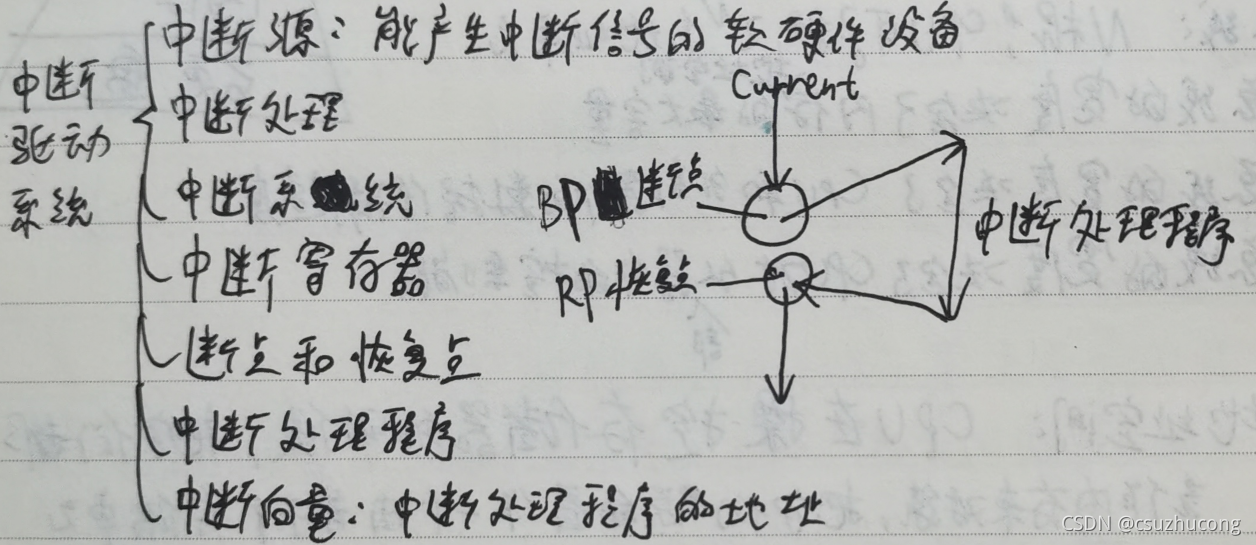 中断
驱动
系统
中断源：能产生中断信号的软硬件设备
中断处理
中断系统
中断寄存器
断点和恢复点
中断处理程序
中断向量：中断处理程序的地址
Current
BP 断点
RP 恢复点
中断处理程序
CSDN @csuzhucong